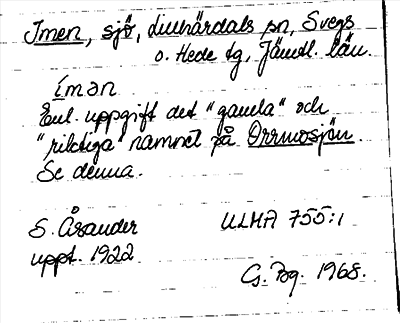 Imen, sjö, Linnärdals sn, Svegs
o. Hede tg, Jämtl. län.
íman
Enl. uppgift det "gamla" och
"riktiga" namnet på Orrmosjön.
Se denna.
S. Åsander
uppt. 1922
ULMA 755:1
G. Pog. 1968.